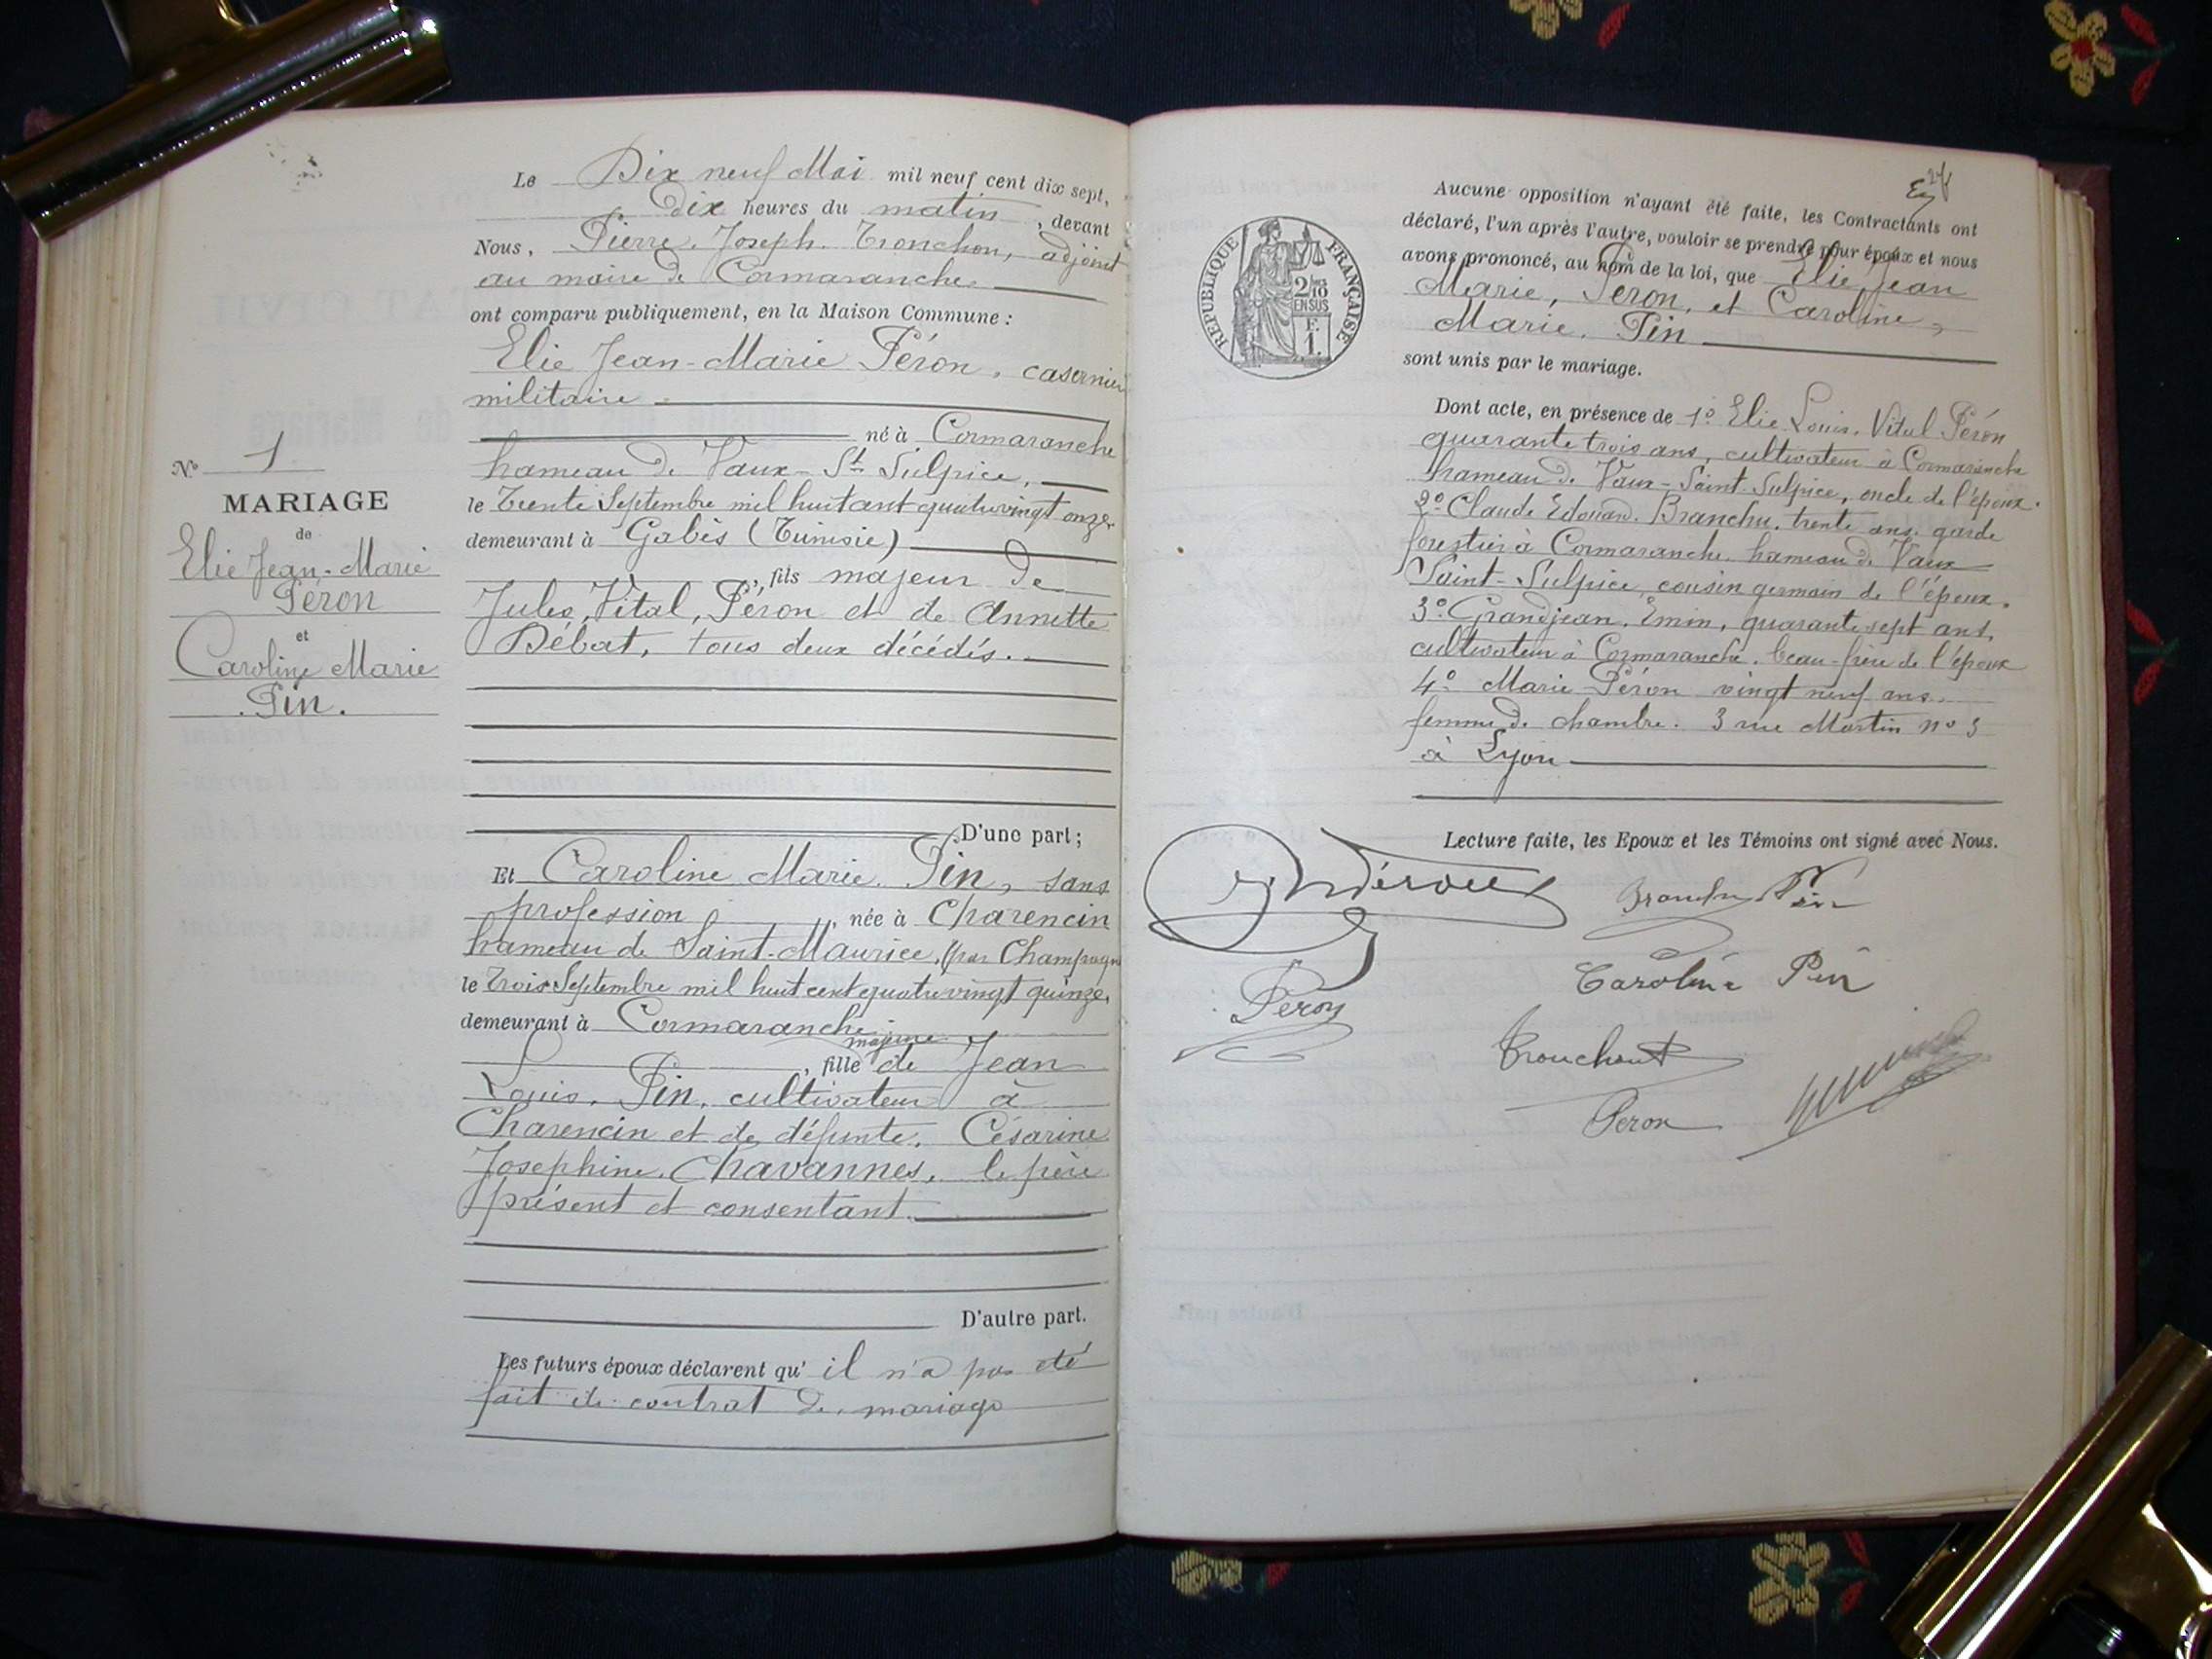 Le Dix neuf Mai mil neuf cent dix sept,
dix heures du matin, devant
Nous, Pierre, Joseph. Tronchon, adjoint
au maire de Cormaranche.
ont comparu publiquement, en la Maison Commune :
Elie Jean-Marie Péron, casernier
militaire
né à Cormaranche
hameau de Vaux-St Sulpice,
le Trente Septembre mil huit cent quatre vingt onze,
demeurant à Gabès (Tunisie)
, fils majeur de
Jules, Vital, Péron et de Annette
Débat, tous deux décédés.
D'une part ;
Et Caroline Marie. Pin, sans
profession, née à Charencin
hameau de Saint-Maurice, (par Champagne
le Trois Septembre mil huit cent quatre vingt quinze,
demeurant à Cormaranche
majeure
, fille de Jean
Louis. Pin, cultivateur à
Charencin et de défunte. Césarine
Josephine. Chavannes, le père
présent et consentant.
D'autre part.
Les futurs époux déclarent qu' il n'a pas été
fait de contrat de mariage
N° 1
MARIAGE
de
Elie Jean-Marie
Péron
et
Caroline Marie
Pin.
RÉPUBLIQUE FRANÇAISE
2/10
EN SUS
F.
1.
Aucune opposition n'ayant été faite, les Contractants ont
déclaré, l'un après l'autre, vouloir se prendre pour époux et nous
avons prononcé, au nom de la loi, que Elie Jean
Marie, Péron, et Caroline,
Marie. Pin
sont unis par le mariage.
Dont acte, en présence de 1° Elie Louis. Vital Péron
quarante trois ans, cultivateur à Cormaranche
hameau de Vaux-Saint-Sulpice, oncle de l'époux.
2° Claude Edouard. Branchu, trente ans, garde
forestier à Cormaranche hameau de Vaux
Saint-Sulpice, cousin germain de l'époux.
3° Grandjean. Emin, quarante sept ans,
cultivateur à Cormaranche. beau-frère de l'époux
4° Marie Péron vingt neuf ans.
femme de chambre. 3 rue Martin n° 3
à Lyon
Lecture faite, les Epoux et les Témoins ont signé avec Nous.
Branchu Pin
Caroline Pin
Peron
Tronchont
Peron